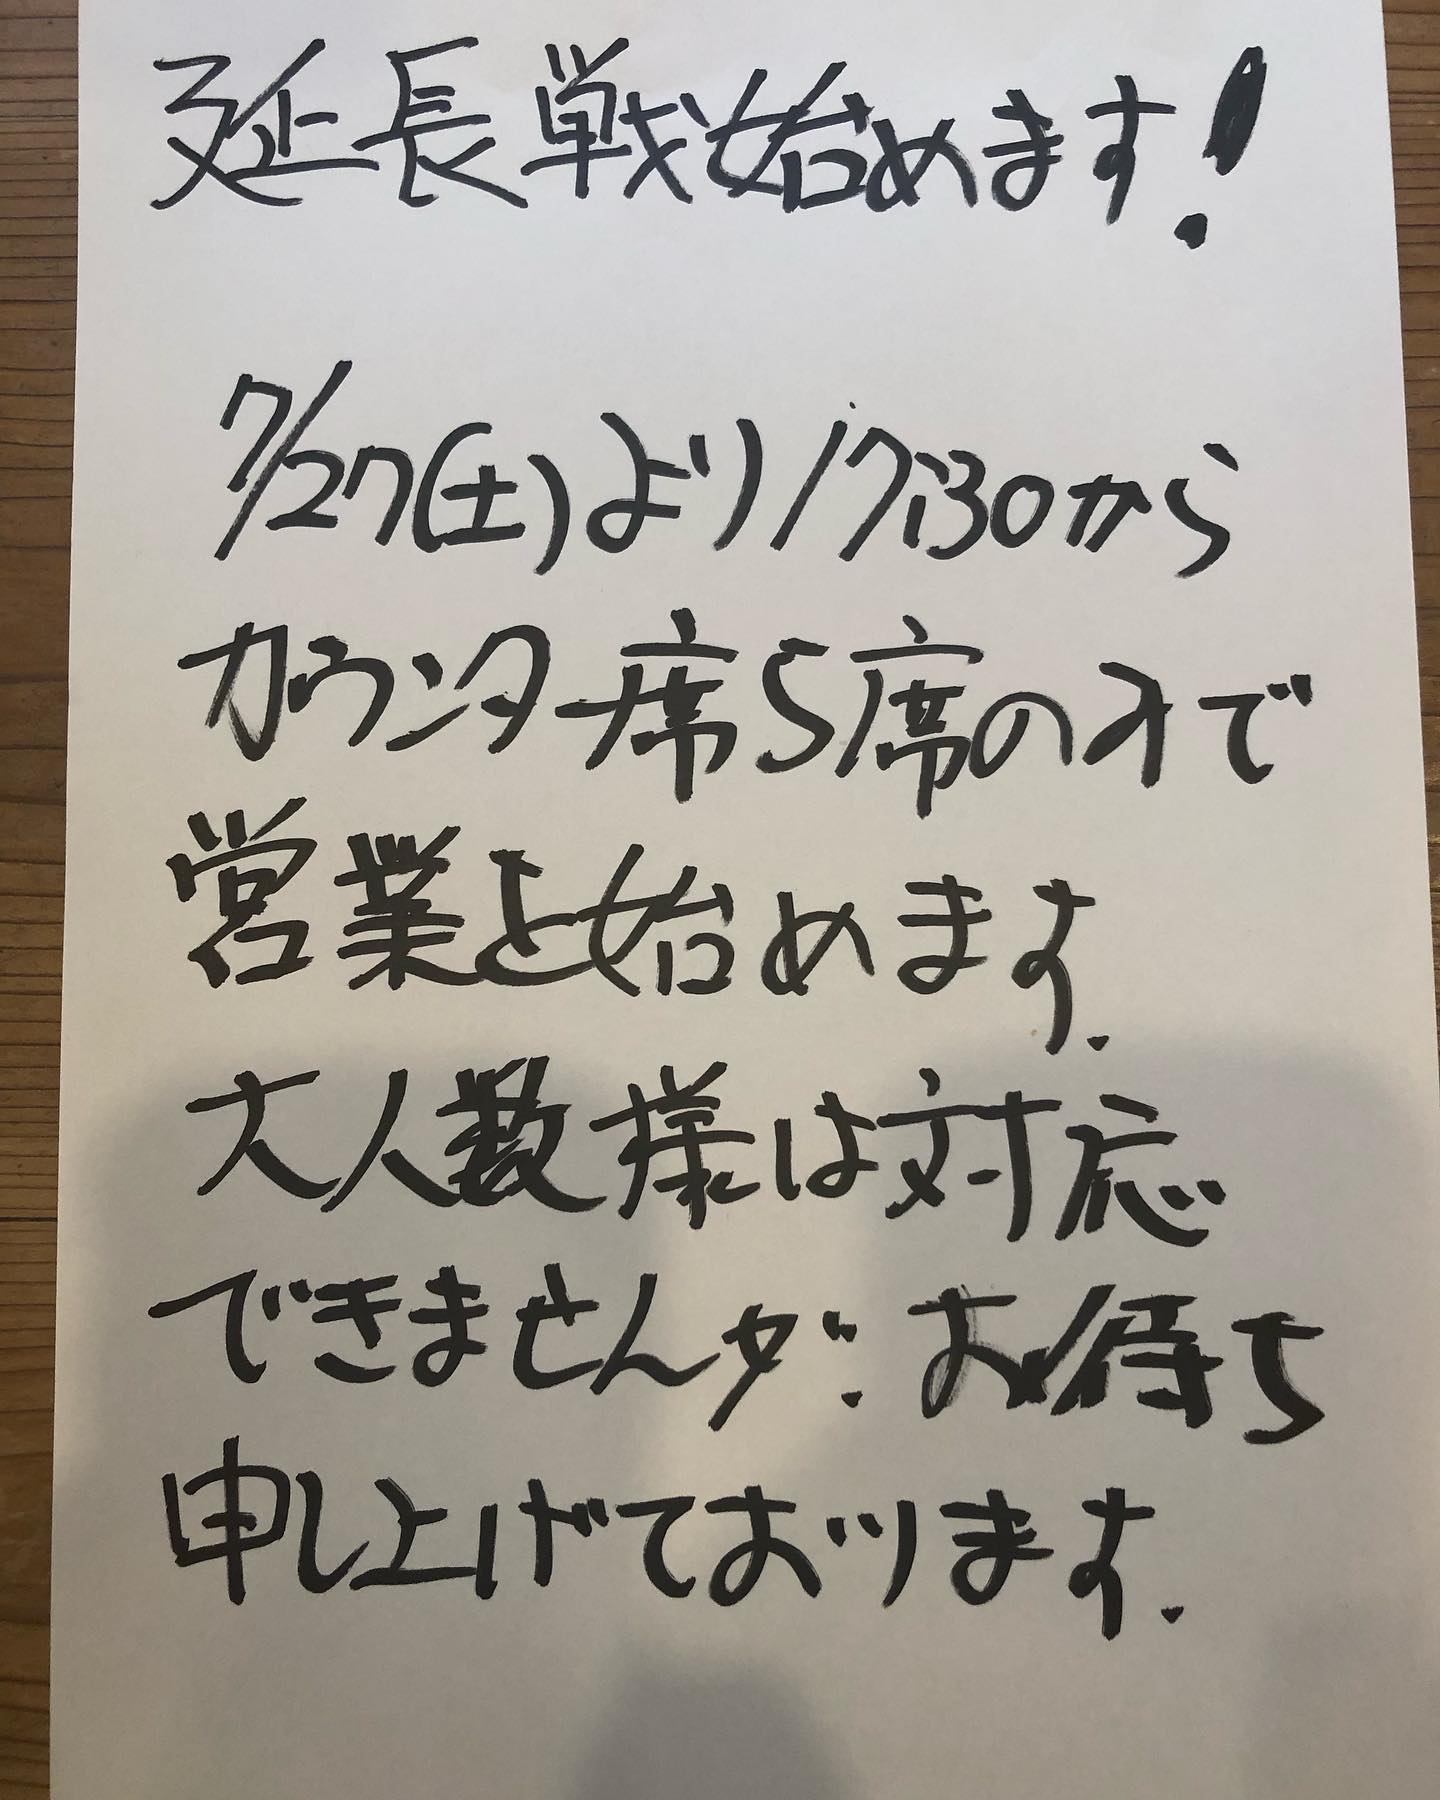 延長戦始めます!
7/27(土)より17:30から
カウンター席5席のみで
営業を始めます.
大人数様は対応
できませんが.お待ち
申し上げております.